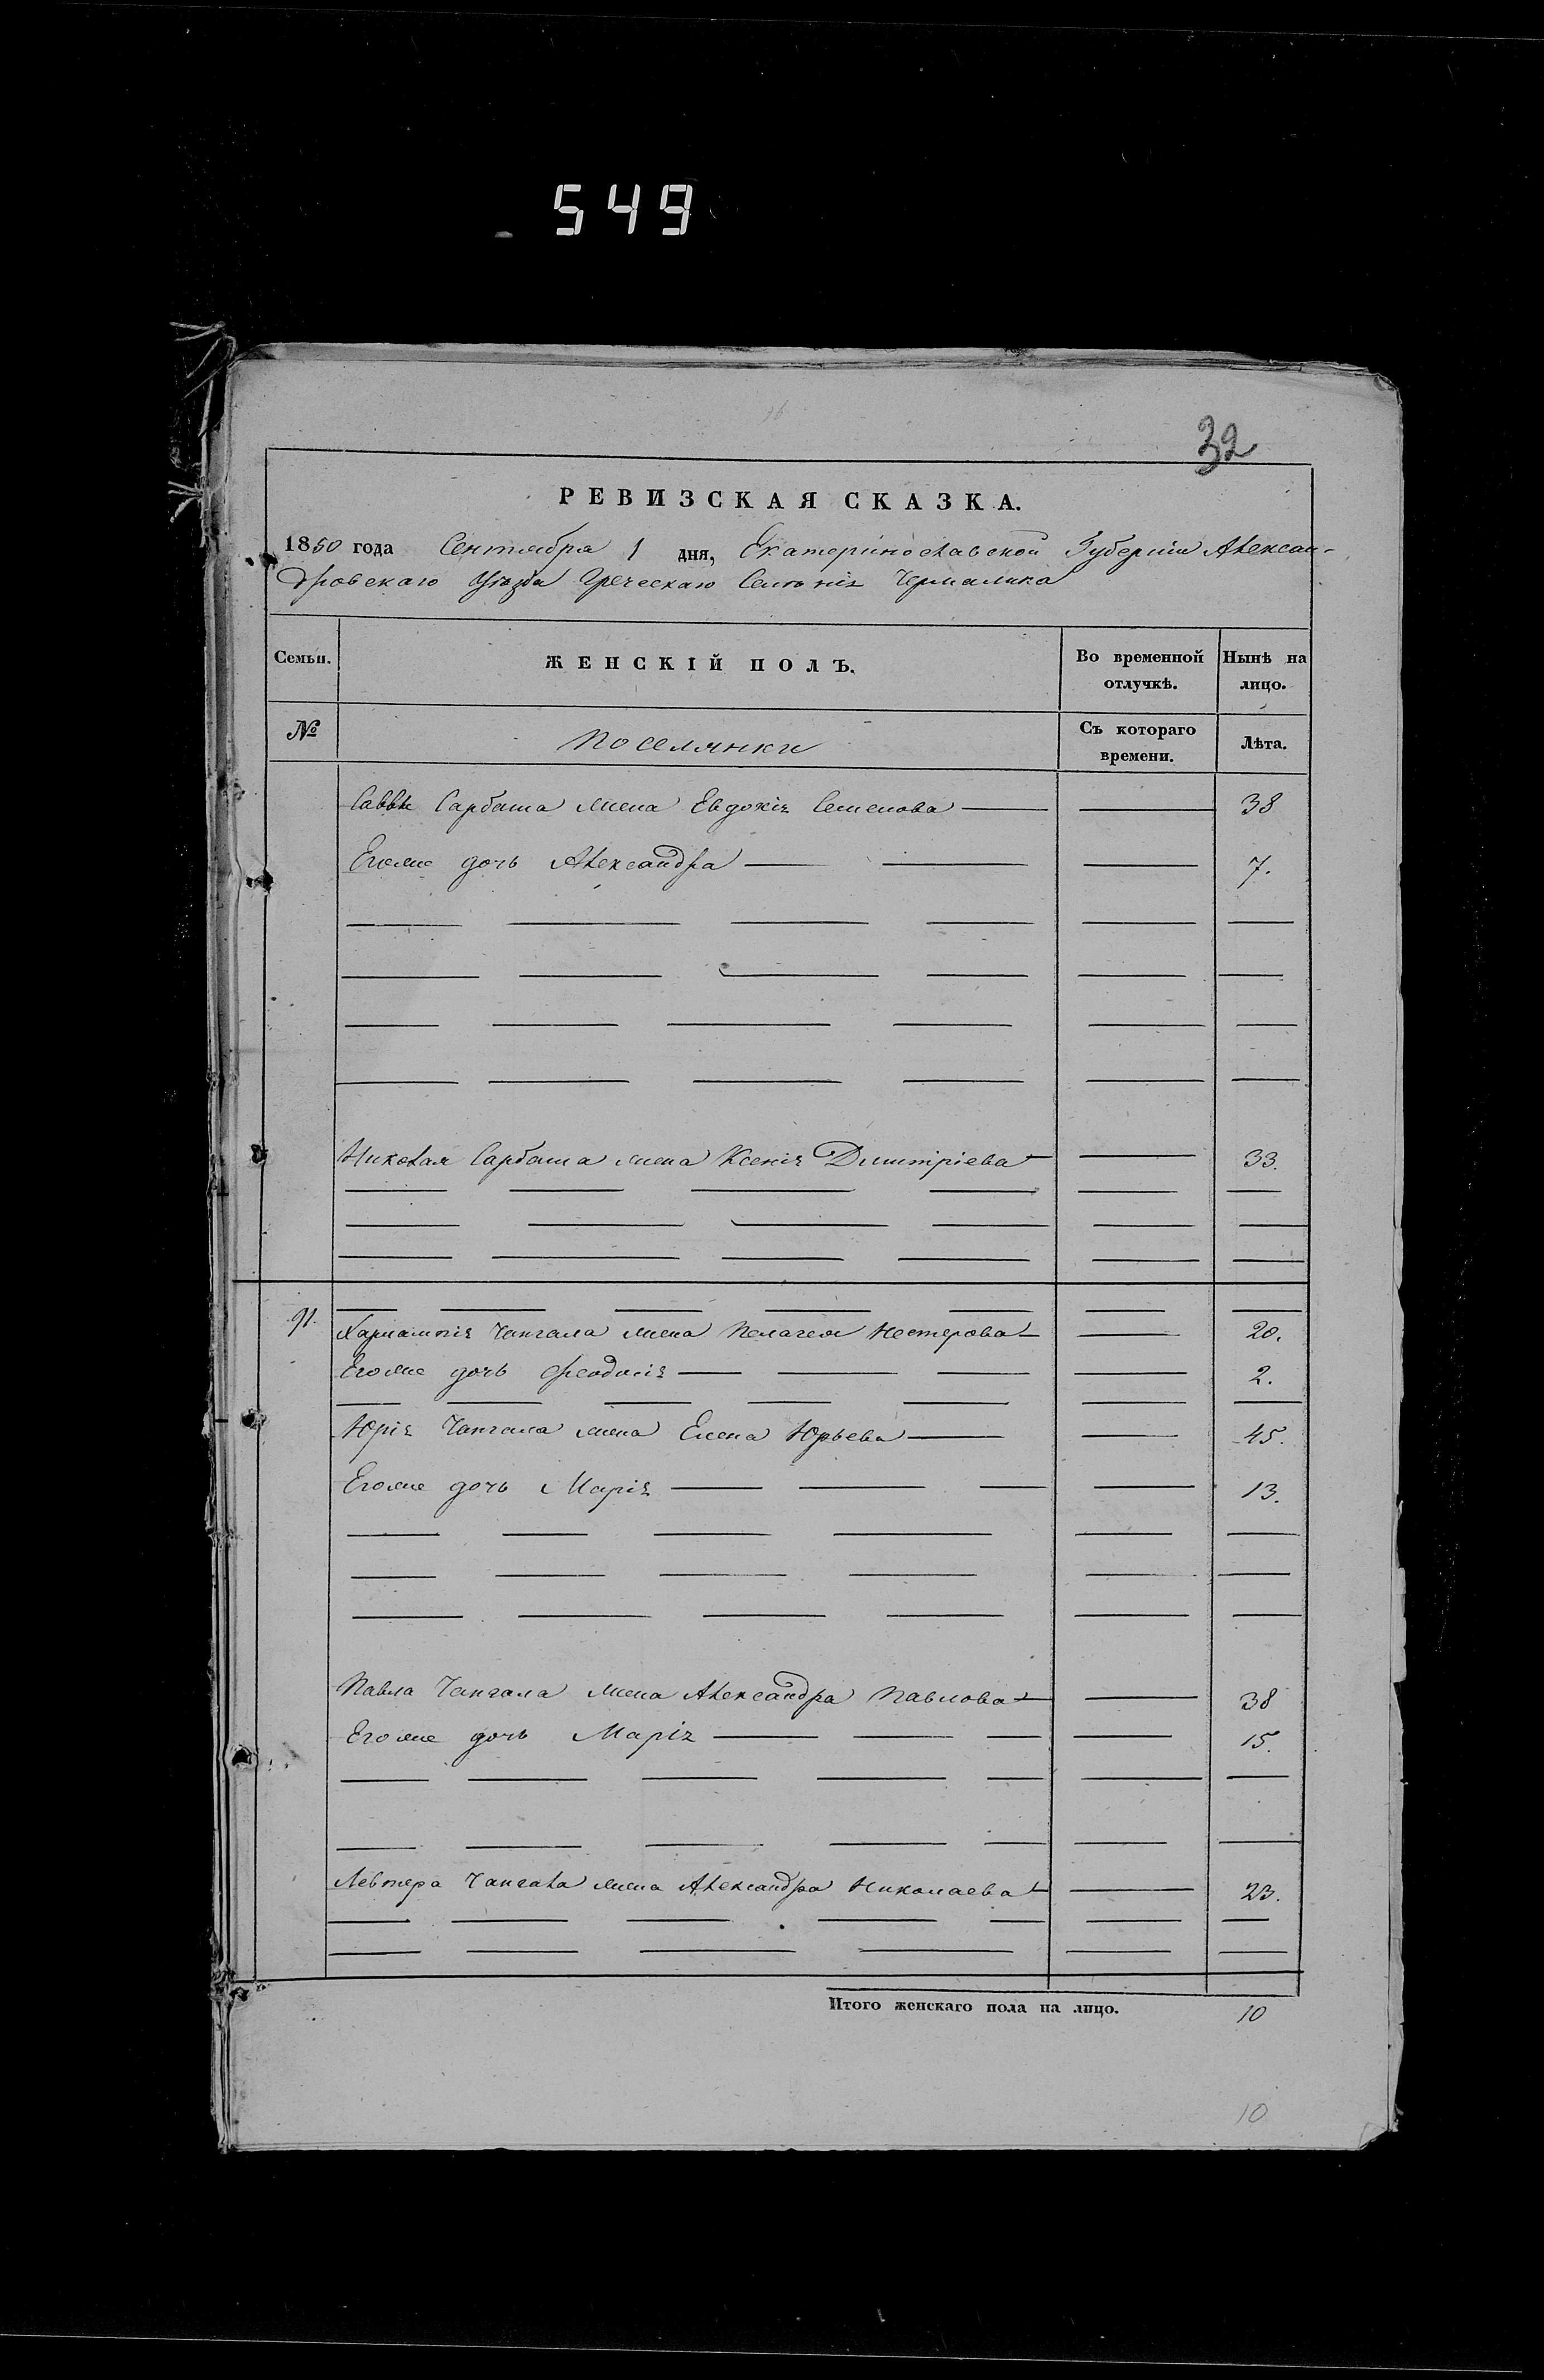 549
32
РЕВИЗСКАЯ СКАЗКА.
1850 года Сентября 1 дня, Екатеринославской Губерніи Алексан-
дровскаго Уѣзда Греческаго Селѣнія Чермалыка
Семьи. ЖЕНСКІЙ ПОЛЪ. Во временной отлучкѣ. Нынѣ на лицо.
№ Поселянки Съ котораго времени. Лѣта.
Саввы Сарбаша жена Евдокія Семенова 38
Егоже дочь Александра 7.
Николая Сарбаша жена Ксенія Димитріева 33.
91. Харлампія Чангала жена Пелагея Нестерова 20.
Егоже дочь Феодосія 2.
Юрія Чангала жена Елена Юрьева 45.
Егоже дочь Марія 13.
Павла Чангала жена Александра Павлова 38
Егоже дочь Марія 15.
Левтера Чангала жена Александра Николаева 23.
Итого женскаго пола на лицо. 10
10